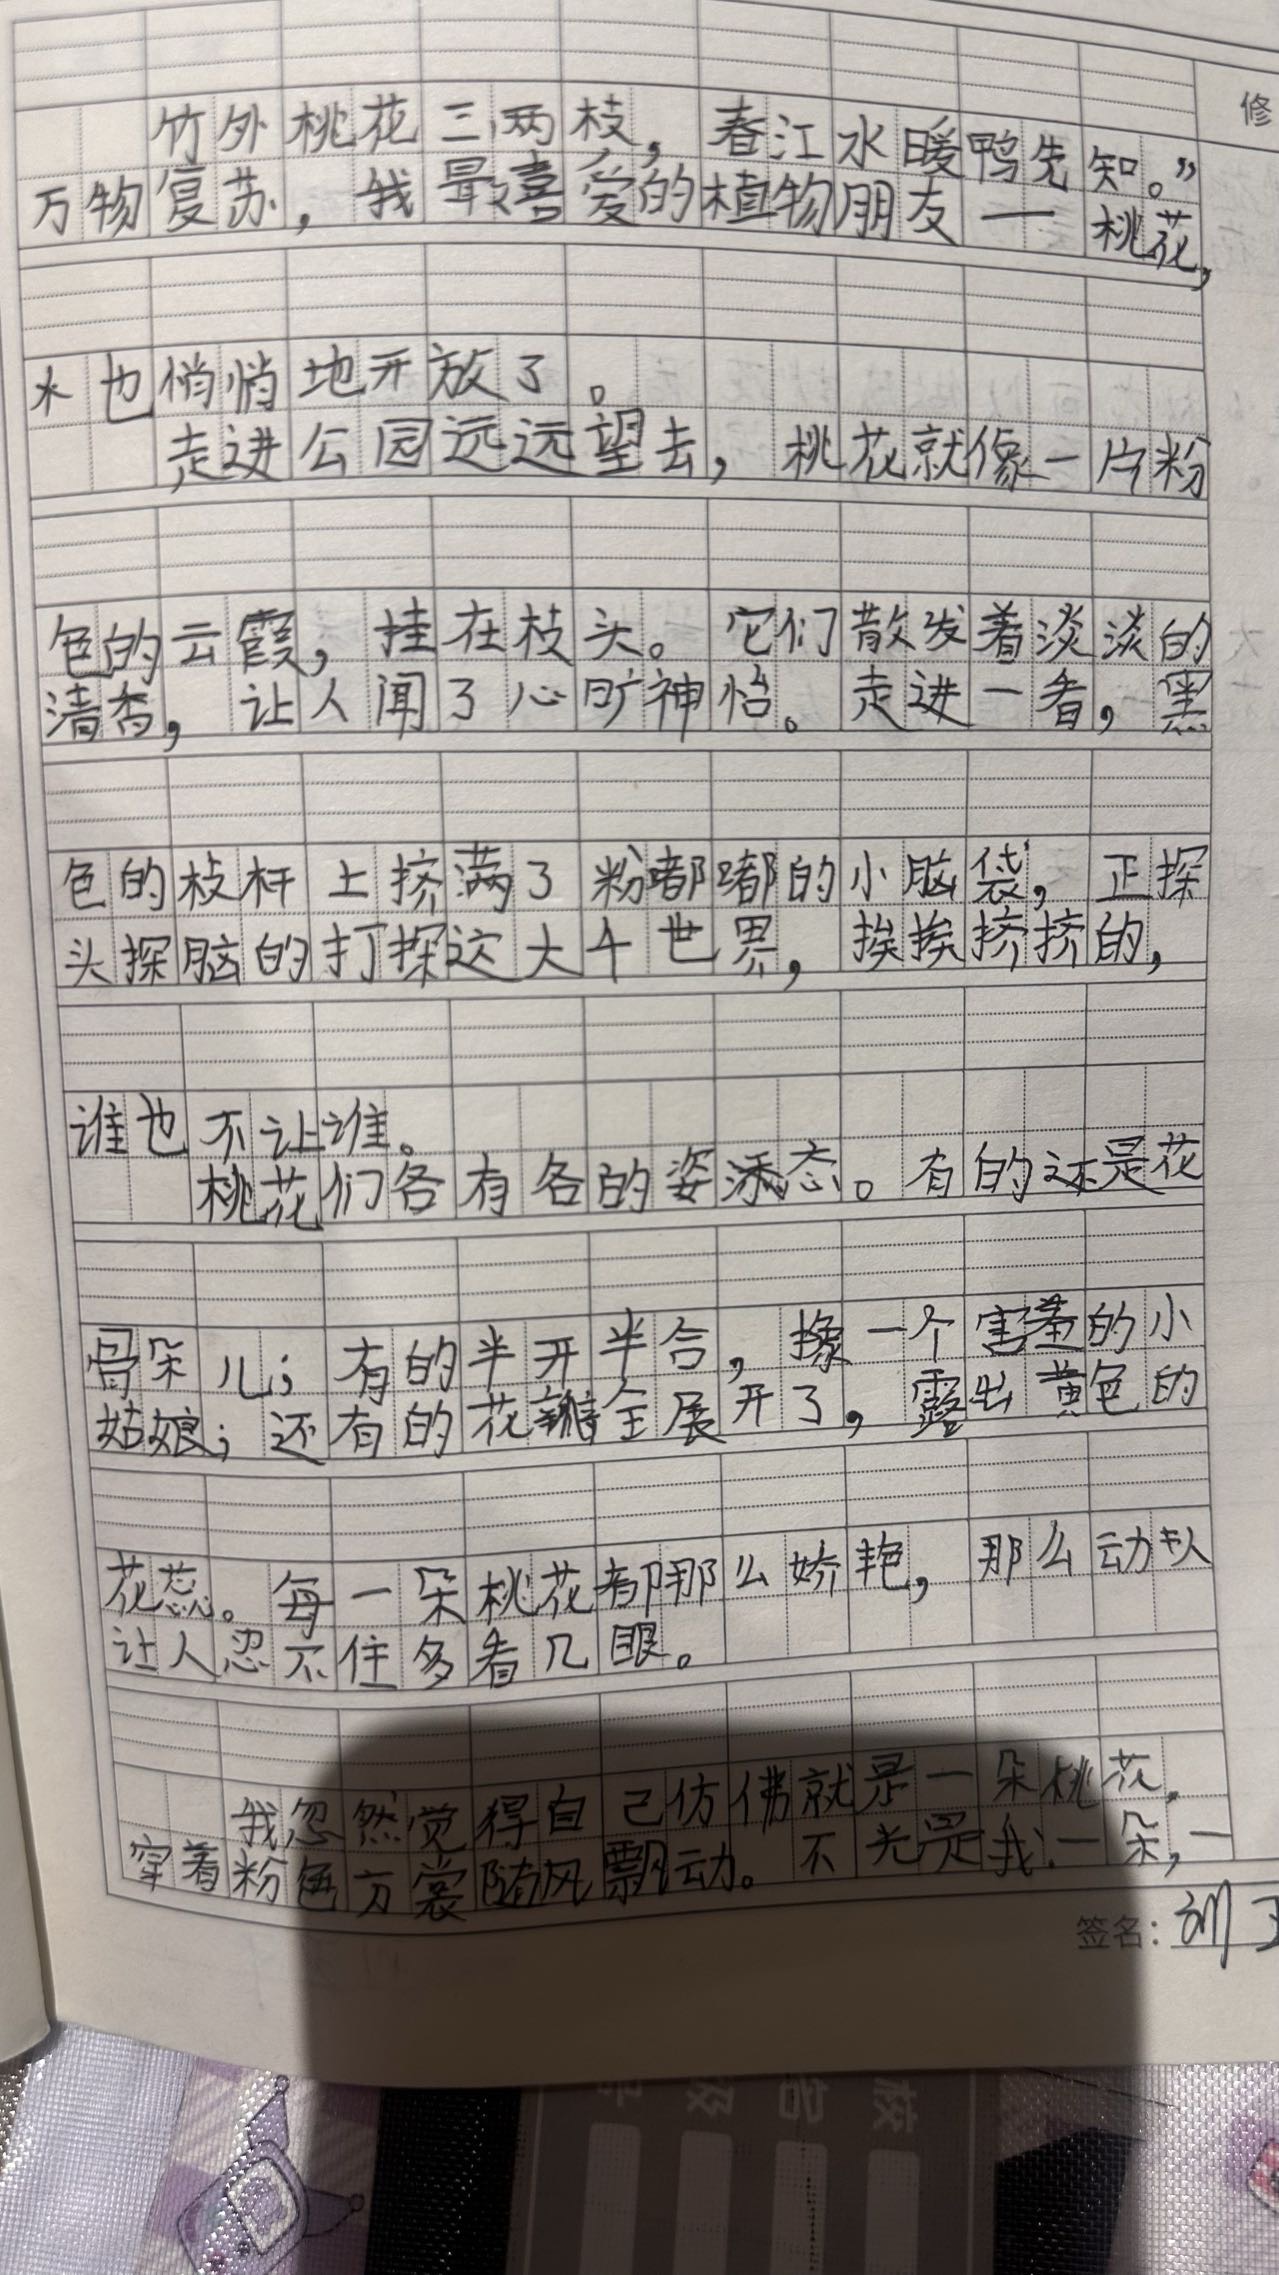 修
竹外桃花三两枝，春江水暖鸭先知。”
万物复苏，我最喜爱的植物朋友——桃花，
也悄悄地开放了。
走进公园远远望去，桃花就像一片粉
色的云霞，挂在枝头。它们散发着淡淡的
清香，让人闻了心旷神怡。走进一看，黑
色的枝杆上挤满了粉嘟嘟的小脑袋，正探
头探脑的打探这大千世界，挨挨挤挤的，
谁也不让谁。
桃花们各有各的姿态。有的还是花
骨朵儿；有的半开半合，像一个害羞的小
姑娘；还有的花瓣全展开了，露出黄色的
花蕊。每一朵桃花都那么娇艳，那么动人
让人忍不住多看几眼。
我忽然觉得自己仿佛就是一朵桃花，
穿着粉色衣裳随风飘动。不光是我一朵，一
签名：刘